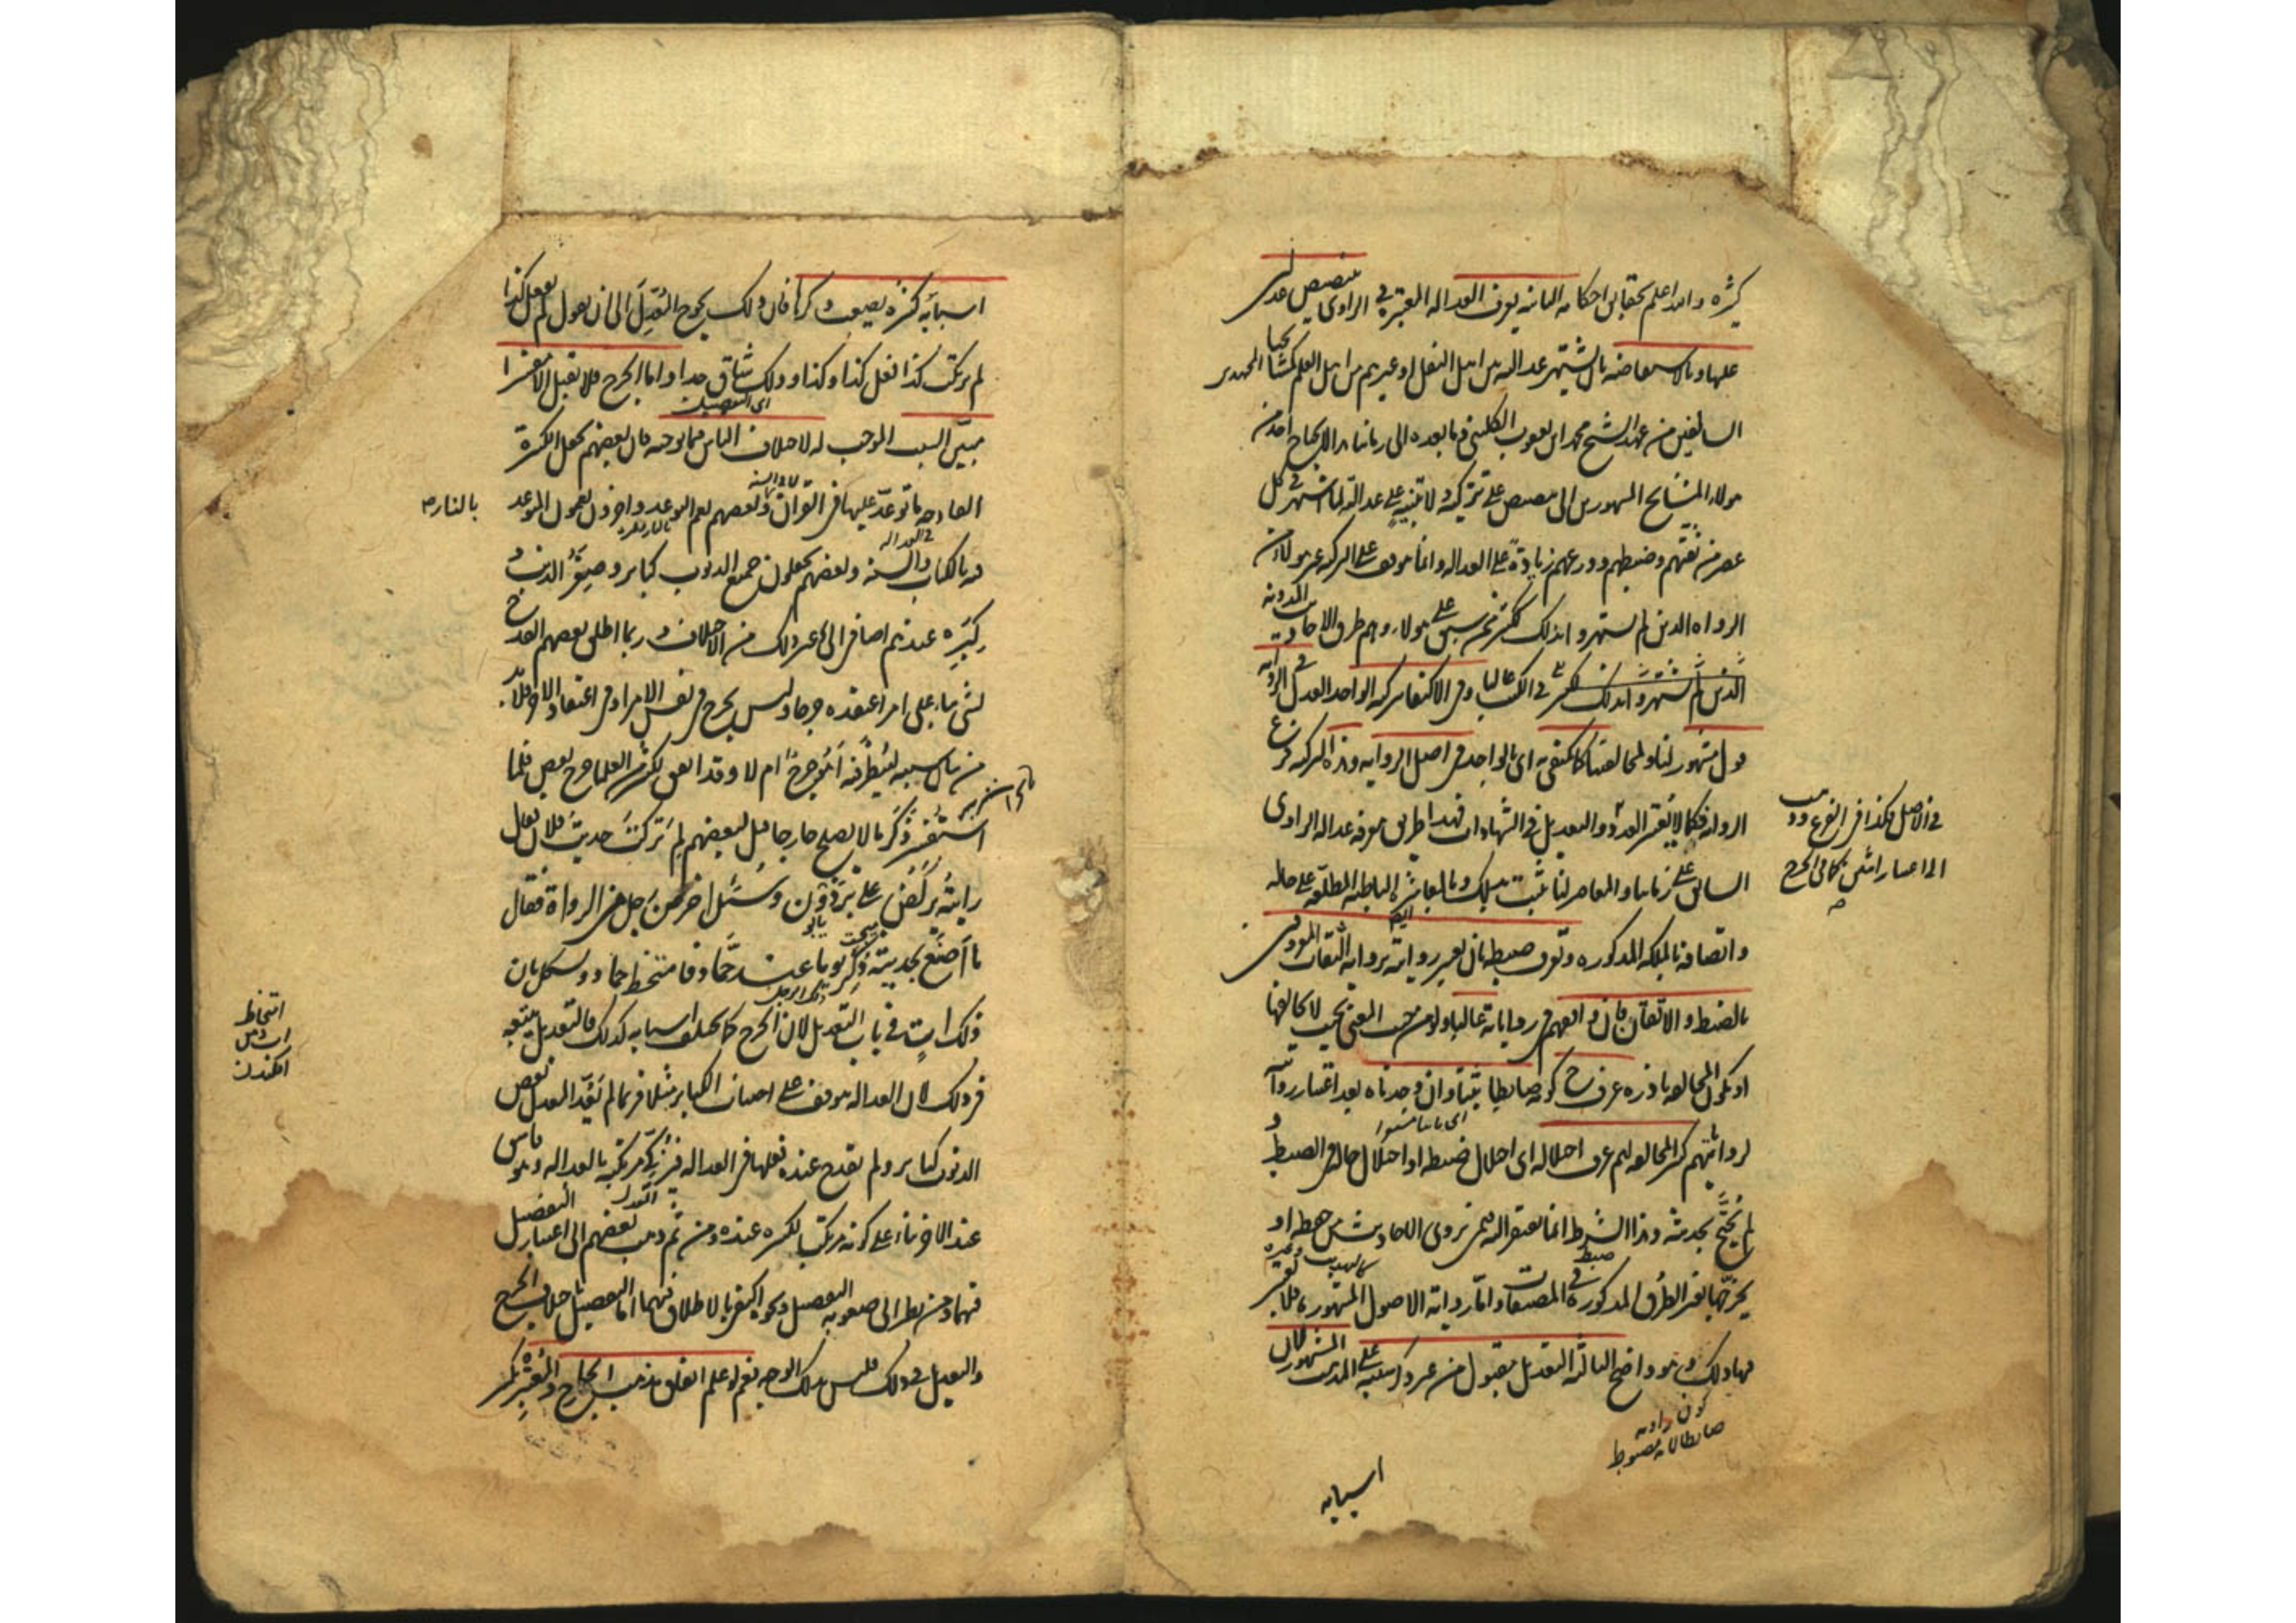 كثيرة والله اعلم بحقايق احكامه الثانية يعرف العدالة المعتبرة في الراوي بتنصيص عدلين
عليها وبالاستفاضة بان يشتهر عدالته بين اهل النقل او غيرهم من اهل العلم كمشايخنا
السالفين من عهد الشيخ محمد ابن يعقوب الكليني وما بعده الى زماننا هذا لا يحتاج احد من
هولاء المشايخ المشهورين الى تنصيص على تزكية ولا تنبيه على عدالة لما اشتهر في كل
عصر من ثقتهم وضبطهم وورعهم زيادة على العدالة وانما يتوقف على التزكية غير هولاء من
الرواة الذين لم يشتهروا بذلك ككثير ممن سبق على هولاء وهم طرق الاحاديث المدونة
الذين لم يشتهروا بذلك ككثير
في الكتب غالبا وفي الاكتفاء بتزكية الواحد العدل في الرواية
قول مشهور لنا ولمخالفينا كما يكتفى به اي بالواحد في اصل الرواية وهذه التزكية فرع
الرواية فكما لا يعتبر العدد في الاصل فكذا في الفرع وذهب
الى اعتبار اثنين كما في الجرح
والتعديل في الشهادات فهذا طريق معرفة عدالة الراوي
السابق على زماننا والمعاصر لنا يثبت بذلك وبالمعاشرة الباطنة المطلعة على حاله
واتصافه بالملكة المذكورة ويعرف ضبطه بان يعتبر روايته برواية الثقات المعروفين
بالضبط والاتقان فان وافقهم في رواياته غالبا ولو من حيث المعنى بحيث لا يخالفها
او يكون المخالفة نادرة عرف ح كونه ضابطا ثبتا وان وجدناه بعد اعتبار رواياته
لرواياتهم كثير المخالفة لهم عرف اختلاله اي اختلال ضبطه او اختلال حاله في الضبط و
لم يحتج بحديثه وهذا الشرط انما يعتبر فيمن يروي الاحاديث من حفظه او
يخرجها بغير الطرق المذكورة في المصنفات واما رواية الاصول المشهورة فلا يعتبر
فيها ذلك وهو واضح الثالثة التعديل مقبول من غير ذكر سببه على المذهب المشهور لان
كون راويه
ضابطا لانه مضبوط
اسبابه
اسبابه كثيرة يصعب ذكرها فان ذلك يحوج المعدل الى ان يقول لم يفعل كذا
لم يرتكب كذا فعل كذا وكذا وذلك شاق جدا واما الجرح فلا يقبل الا مفسرا
مبين السبب الموجب له لاختلاف الناس فيما يوجبه فان بعضهم يجعل الكبيرة
القادحة ما توعد عليها في القران وبعضهم يعم التوعد واخرون يعمون المتوعد
بالنار
فيه بالكتاب والسنة وبعضهم يجعلون جميع الذنوب كباير وصغر الذنب و
كبره عندهم اضافي الى غير ذلك من الاختلاف وربما اطلق بعضهم القدح
لشيء بناء على امر اعتقده جرحا وليس بجرح في نفس الامر او في اعتقاد الاخر فلا بد
من بيان سببه لينظر فيه اهو جرح ام لا وقد اتفق لكثير من العلماء جرح بعض فلما
استفسر ذكر ما لا يصلح جارحا قيل لبعضهم لم تركت حديث فلان فقال
رايته يركض على برذون وسئل اخر عن رجل من الرواة فقال
ما اصنع بحديثه ذكر يوما عند حماد فامتخط حماد ويشكل بان
ذلك آت في باب التعديل لان الجرح كما يختلف اسبابه كذلك التعديل يتبعه
امتخاط
في ذلك لان العدالة تتوقف على اجتناب الكباير مثلا فربما لم يعد المعدل بعض
الذنوب كباير ولم يقدح عنده فعلها في العدالة فيزكي مرتكبه بالعدالة وهو فاسق
عند الاخر بناء على كونه مرتكبا لكبيرة عنده ومن ثم ذهب بعضهم الى اعتبار التفصيل
فيهما ومن نظر الى صعوبة التفصيل ونحوه اكتفى بالاطلاق فيهما اما التفصيل باختلاف الجرح
والتعديل في ذلك فليس بذلك الوجه نعم لو علم اتفاق مذهب الجارح والمعتبر بكسر